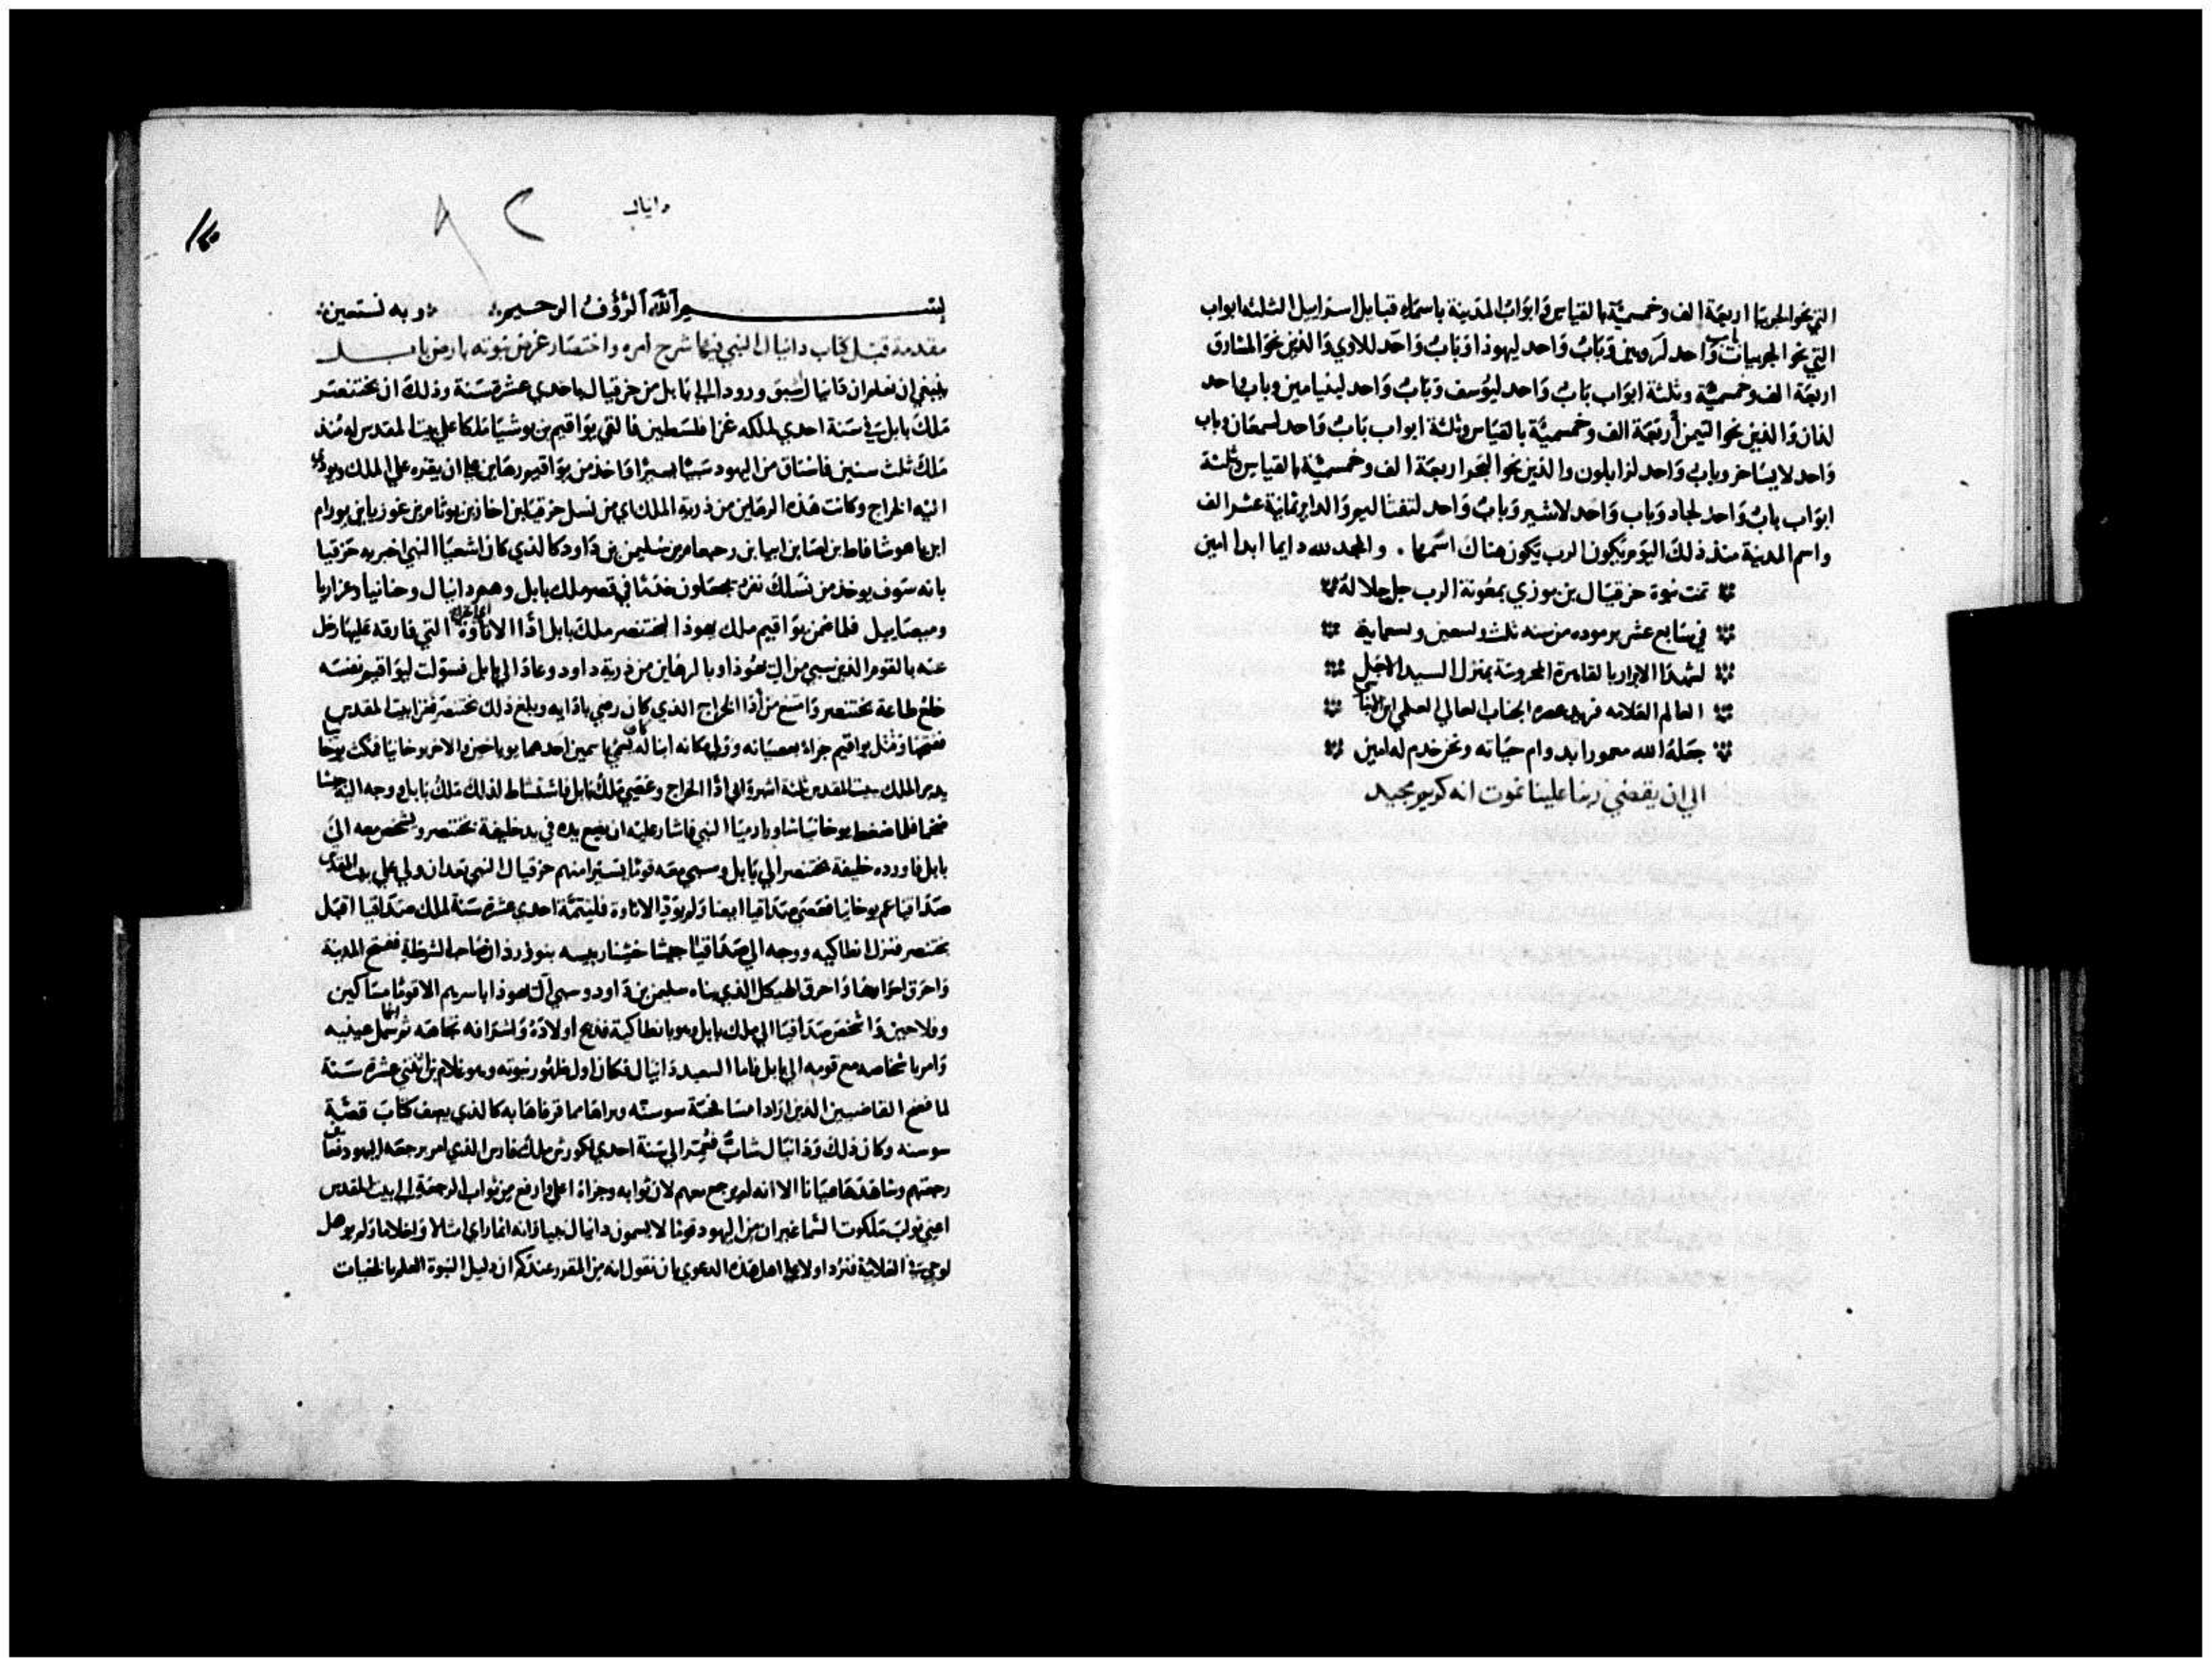 التي نحو الجربيا اربعة الف وخمسمية بالقياس وابواب المدينة باسماء قبايل اسراييل الثلثه ابواب
التي نحو الجربيا باب واحد لروبين وباب واحد ليهوذا وباب واحد للاوي والذين نحو المشارق
اربعة الف وخمسمية وثلثة ابواب باب واحد ليوسف وباب واحد لبنيامين وباب واحد
لدان والذين نحو التيمن اربعة الف وخمسمية بالقياس وثلثة ابواب باب واحد لسمعان وباب
واحد لايساخر وباب واحد لزابلون والذين نحو البحر اربعة الف وخمسمية بالقياس وثلثة
ابواب باب واحد لجاد وباب واحد لاشير وباب واحد لنفتاليم والداير ثمانية عشر الف
واسم المدينة منذ ذلك اليوم يكون الرب يكون هناك اسمها . والمجد لله دايما ابدا امين
تمت نبوة حزقيال بن بوزي بمعونة الرب جل جلاله
في سابع عشر برموده من سنه ثلث وتسعين وتسماية
لشهدا الابرار بالقاهرة المحروسة بمنزل السيد الاجل
العالم العلامه فريد عصره الجناب العالي العلمي
جعله الله معمورا بدوام حياته ونحن خدم له امين
الي ان يقضي ربنا علينا نموت انه كريم مجيد
دانيال
بسم الله الرؤوف الرحيم وبه نستعين
مقدمة قبل كتاب دانيال النبي فيها شرح امره واختصار غرض نبوته بارض بابل
ينبغي ان نعلم ان دانيال سبق وروده الي بابل من حزقيال باحدي عشرة سنة وذلك ان بختنصر
ملك بابل في سنة احدي لملكه غزا فلسطين فالتقي يواقيم بن يوشيا ملكا علي بيت المقدس له منذ
ملك ثلث سنين فاستاق من اليهود سبيا يسيرا واخذ من يواقيم رهاين علي ان يقره علي الملك ويودي
اليه الخراج وكانت هذه الرهاين من ذرية الملك اي من نسل حزقيا بن اخاز بن يوثام بن عوزيا بن يورام
ابن ياهوشافاط بن اسا بن ابيا بن رحبعام بن سليمن بن داود كالذي كان اشعيا النبي اخبر به حزقيا
بانه سوف يوخذ من نسلك نفر يجعلون خدما في قصر ملك بابل وهم دانيال وحنانيا وعزاريا
وميصاييل فلما ضمن يواقيم ملك يهوذا لبختنصر ملك بابل اذا الاتاوة التي فارقه عليها رحل
عنه بالقوم الذين سبي من ال يهوذا وبالرهاين من ذرية داود وعاد الي بابل فسولت ليواقيم نفسه
خلع طاعة بختنصر وامتنع من اذا الخراج الذي كان رضي باذايه وبلغ ذلك بختنصر فغزا بيت المقدس
ففتحها وقتل يواقيم جزاء بعصيانه وولي مكانه ابنا له كان يسمي باسمين احدهما يوياخين والاخر يوخانيا فمكث يوخانيا
يدبر الملك ببيت المقدس ثلثة اشهر وابي اذا الخراج وعصي ملك بابل فاستشاط لذلك ملك بابل ووجه اليه جيشا
ضخما فلما ضغط يوخانيا شاور ارميا النبي فاشار عليه ان يضع يده في يد خليفة بختنصر ويشخص معه الي
بابل فاورده خليفة بختنصر الي بابل وسبي معه قوما يسيرا منهم حزقيال النبي بعد ان ولي علي بيت المقدس
صداقيا عم يوخانيا فعصي صداقيا ايضا ولم يودي الاتاوة فليتمة احدي عشرة سنة لملك صداقيا اقبل
بختنصر فنزل انطاكيه ووجه الي صداقيا جيشا خشنا رييسه بنوزرذان صاحب الشرطة ففتح المدينة
واحرق اسوارها واحرق الهيكل الذي بناه سليمن بن داود وسبي ال يهوذا باسرهم الا قوما مساكين
وفلاحين واشخص صداقيا الي ملك بابل وهو بانطاكية فذبح اولاده واشرافه تجاهه ثم سمل عينيه
وامر باشخاصه مع قومه الي بابل فاما السعيد دانيال فكان اول ظهور نبوته وهو غلام بن اثني عشرة سنة
لما فضح القاضيين الذين ارادا مسافحة سوسنه وبراها مما قرفاها به كالذي يصف كتاب قصة
سوسنه وكان ذلك ودانيال شاب فعمر الي سنة احدي لكورش ملك فارس الذي امر برجعة اليهود
رجعتهم وشاهدها عيانا الا انه لم يرجع معهم لان ثوابه وجزاه اعلي وارفع من ثواب الرجعة الي بيت المقدس
اعني ثواب ملكوت السما غير ان من اليهود قوما لا يسمون دانيال نبيا وانه انما راي امثالا واحلاما ولم يوهل
لوحي علانية فنرد اولا علي اهل هذه الدعوي بان نقول انه من المقرر عندكم ان دليل النبوة العلم بالخفيات